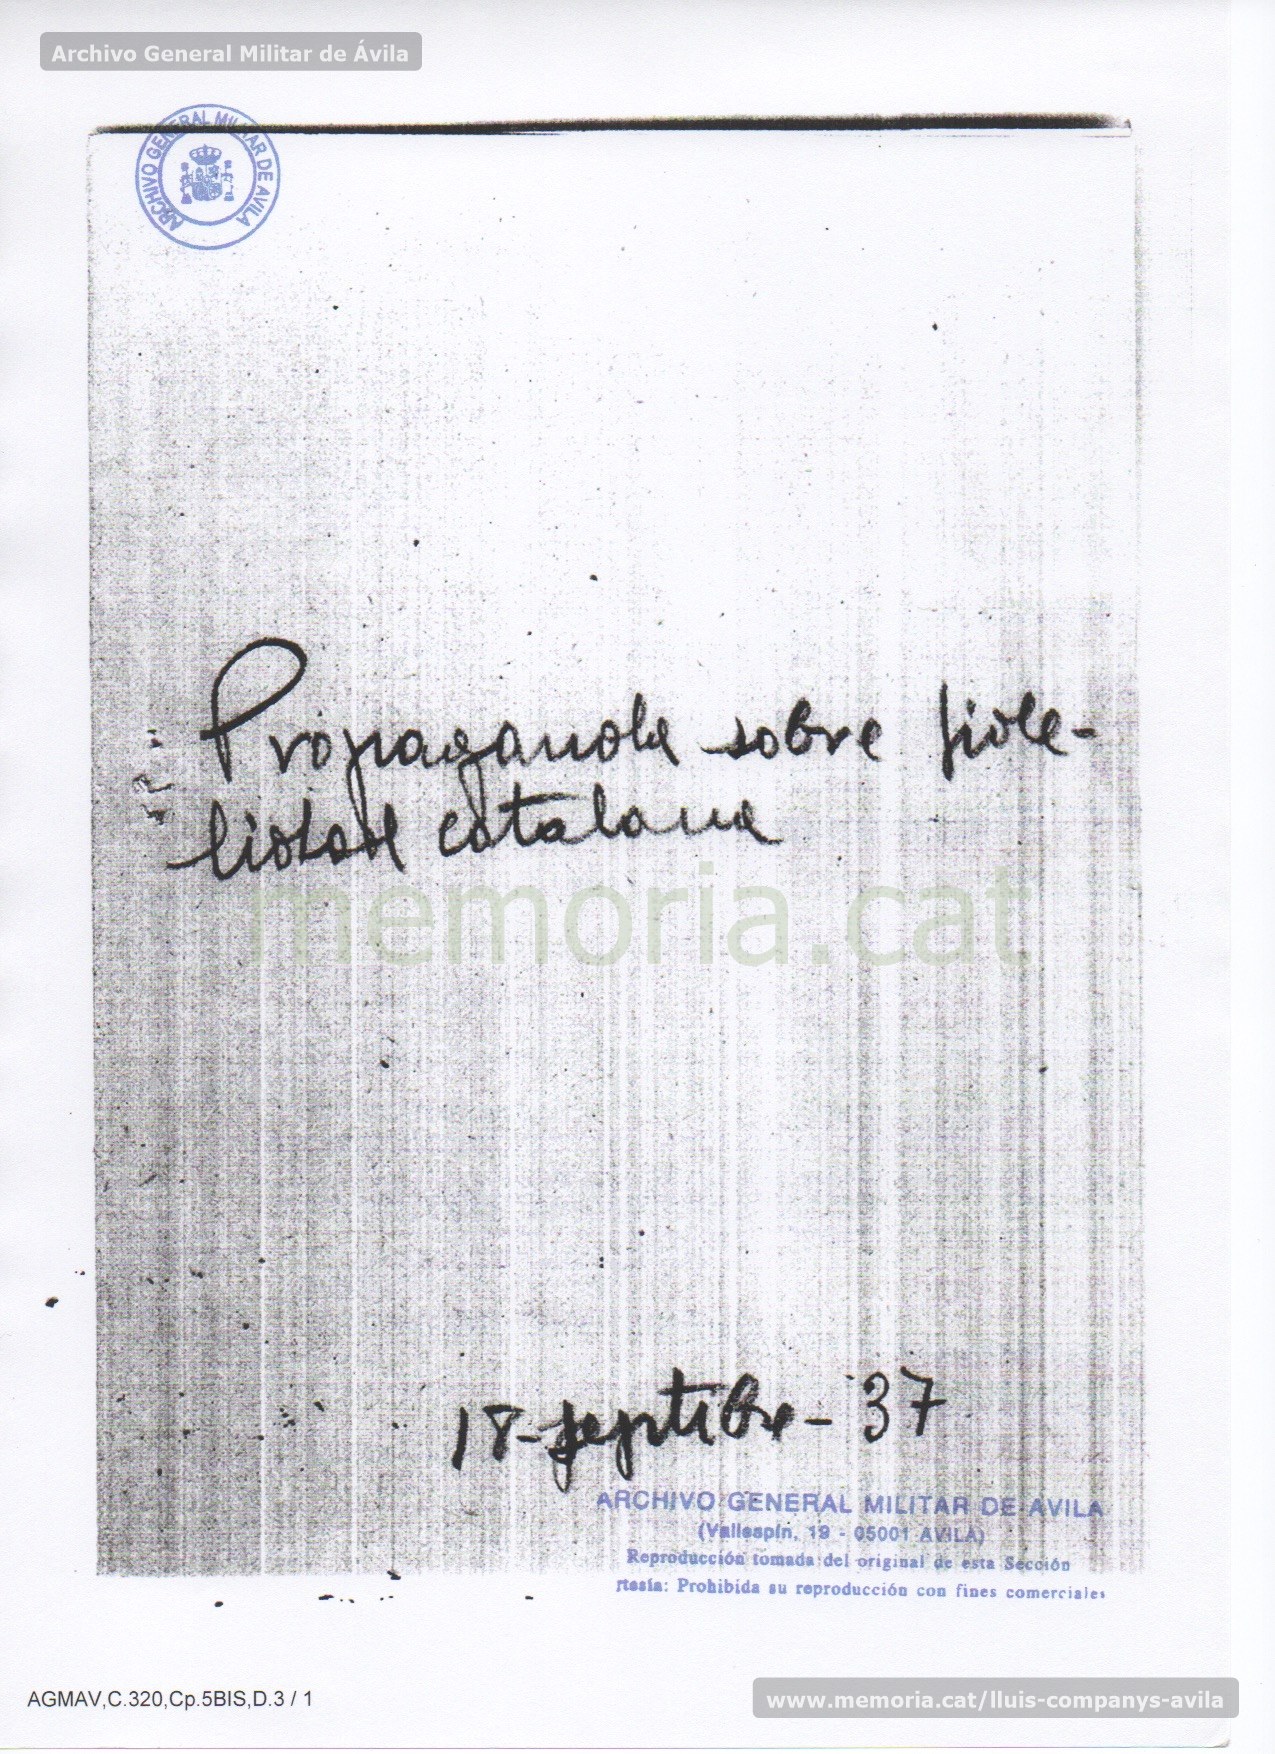 Archivo General Militar de Ávila
ARCHIVO GENERAL MILITAR DE AVILA
Propaganda sobre fide-
lidad catalana
memoria.cat
18-septibre-37
ARCHIVO GENERAL MILITAR DE AVILA
(Vallespín, 19 - 05001 AVILA)
Reproducción tomada del original de esta Sección
rtesía: Prohibida su reproducción con fines comerciales
AGMAV,C.320,Cp.5BIS,D.3 / 1
www.memoria.cat/lluis-companys-avila